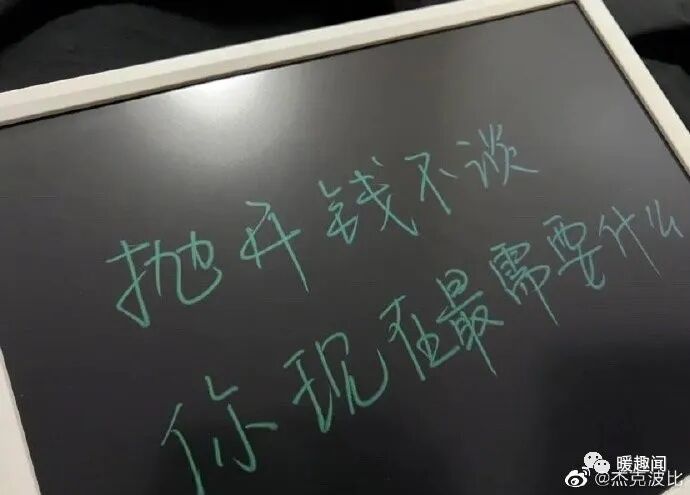 抛开钱不谈
你现在最需要什么
暖趣闻
@杰克波比